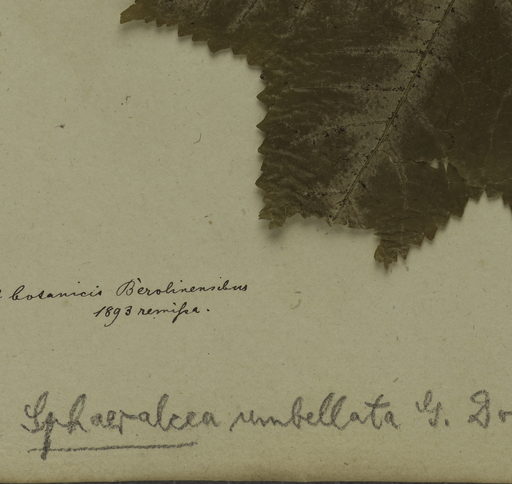 botanicis Berolinensibus
1893 remissa.
Sphaeralcea umbellata G. Do